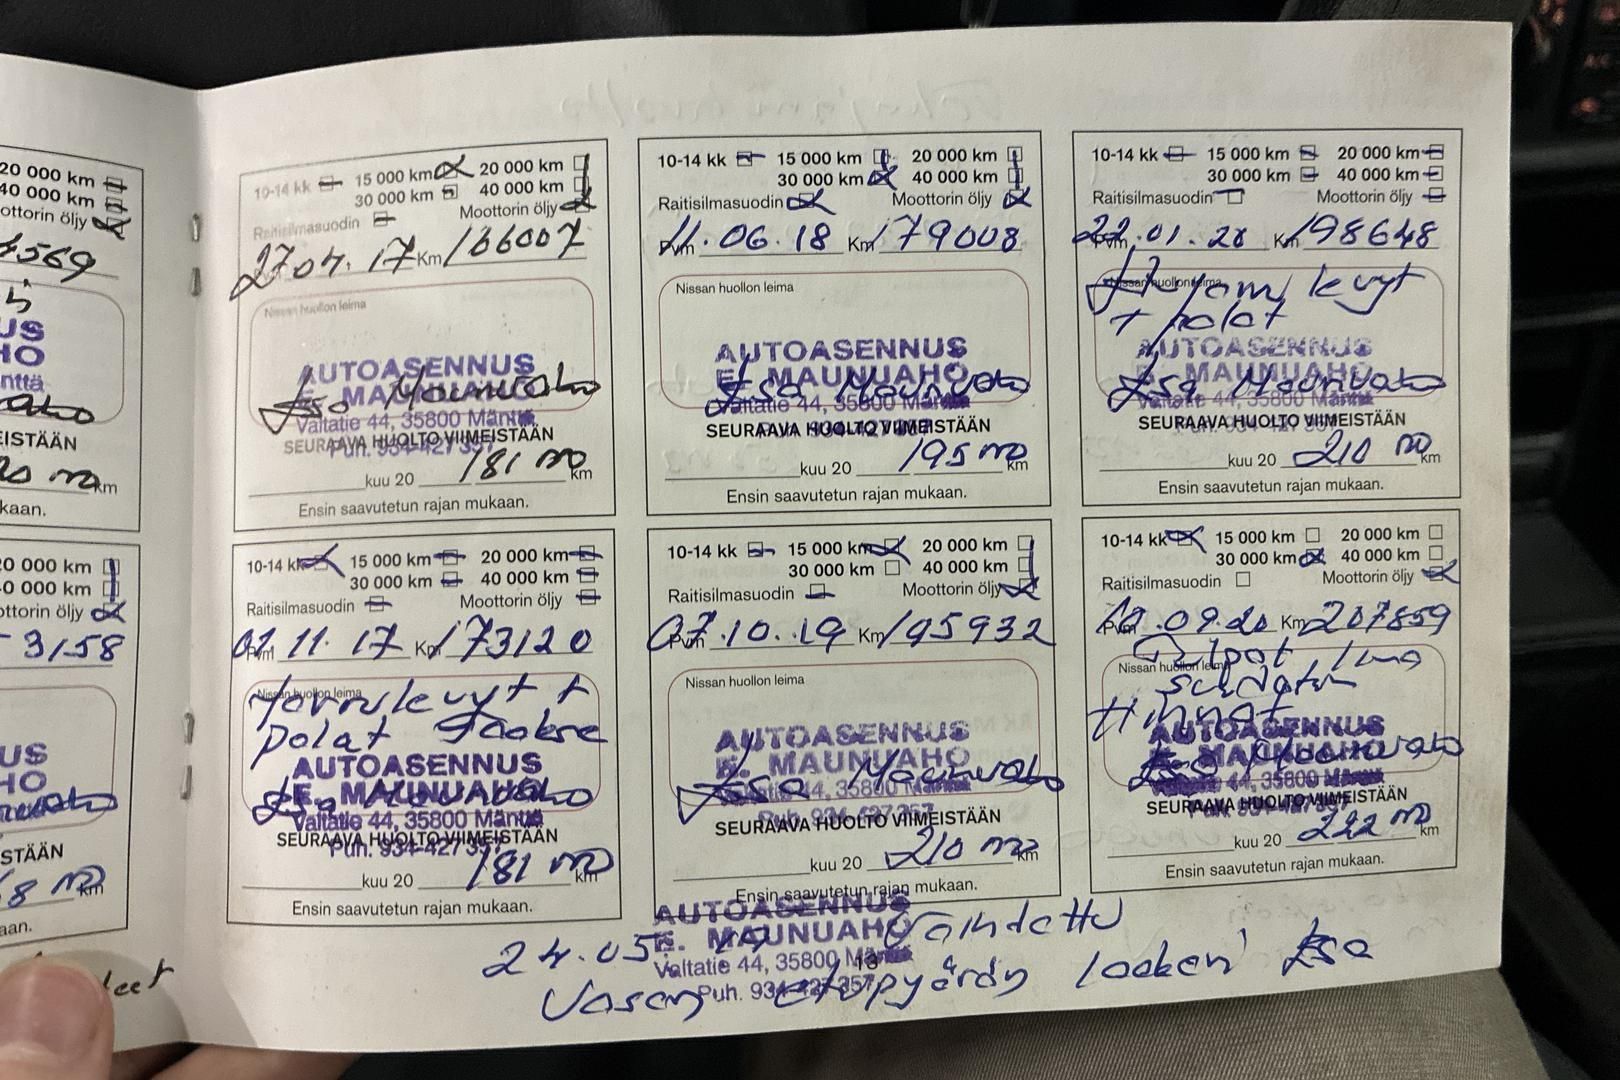 20 000 km
40 000 km
ottorin öljy
4569
US
HO
nttä
EISTÄÄN
km
kaan.
20 000 km
40 000 km
ottorin öljy
3158
US
HO
STÄÄN
8 km
aan.
leet
10-14 kk 15 000 km 20 000 km
30 000 km 40 000 km
Raitisilmasuodin Moottorin öljy
27.04.17 Km 166007
Nissan huollon leima
AUTOASENNUS
E. MAUNUAHO
Esa Maunuaho
Valtatie 44, 35800 Mänttä
Puh. 934-427 357
SEURAAVA HUOLTO VIIMEISTÄÄN
kuu 20 181 km
Ensin saavutetun rajan mukaan.
10-14 kk 15 000 km 20 000 km
30 000 km 40 000 km
Raitisilmasuodin Moottorin öljy
Pvm 11.06.18 Km 179008
Nissan huollon leima
AUTOASENNUS
E. MAUNUAHO
Esa Maunuaho
Valtatie 44, 35800 Mänttä
Puh. 934-427 357
SEURAAVA HUOLTO VIIMEISTÄÄN
kuu 20 195 km
Ensin saavutetun rajan mukaan.
10-14 kk 15 000 km 20 000 km
30 000 km 40 000 km
Raitisilmasuodin Moottorin öljy
Pvm 22.01.20 Km 198648
Nissan huollon leima
levyt
+ palat
AUTOASENNUS
E. MAUNUAHO
Esa Maunuaho
Valtatie 44, 35800 Mänttä
Puh. 934-427 357
SEURAAVA HUOLTO VIIMEISTÄÄN
kuu 20 210 km
Ensin saavutetun rajan mukaan.
10-14 kk 15 000 km 20 000 km
30 000 km 40 000 km
Raitisilmasuodin Moottorin öljy
Pvm 01.11.17 Km 173120
Nissan huollon leima
Jarrulevyt +
palat Taakse
AUTOASENNUS
E. MAUNUAHO
Esa Maunuaho
Valtatie 44, 35800 Mänttä
Puh. 934-427 357
SEURAAVA HUOLTO VIIMEISTÄÄN
kuu 20 181 km
Ensin saavutetun rajan mukaan.
10-14 kk 15 000 km 20 000 km
30 000 km 40 000 km
Raitisilmasuodin Moottorin öljy
Pvm 07.10.19 Km 195932
Nissan huollon leima
AUTOASENNUS
E. MAUNUAHO
Esa Maunuaho
Valtatie 44, 35800 Mänttä
Puh. 934-427 357
SEURAAVA HUOLTO VIIMEISTÄÄN
kuu 20 210 km
Ensin saavutetun rajan mukaan.
10-14 kk 15 000 km 20 000 km
30 000 km 40 000 km
Raitisilmasuodin Moottorin öljy
Pvm .09.20 Km 207859
Nissan huollon leima
Tulpat Ilma
suodatin
Hihnat
AUTOASENNUS
E. MAUNUAHO
Esa Maunuaho
Valtatie 44, 35800 Mänttä
Puh. 934-427 357
SEURAAVA HUOLTO VIIMEISTÄÄN
kuu 20 222 km
Ensin saavutetun rajan mukaan.
AUTOASENNUS
E. MAUNUAHO
Valtatie 44, 35800 Mänttä
Puh. 934-427 357
13
24.05.19 Vaihdettu
Vasen etupyörän laakeri Esa